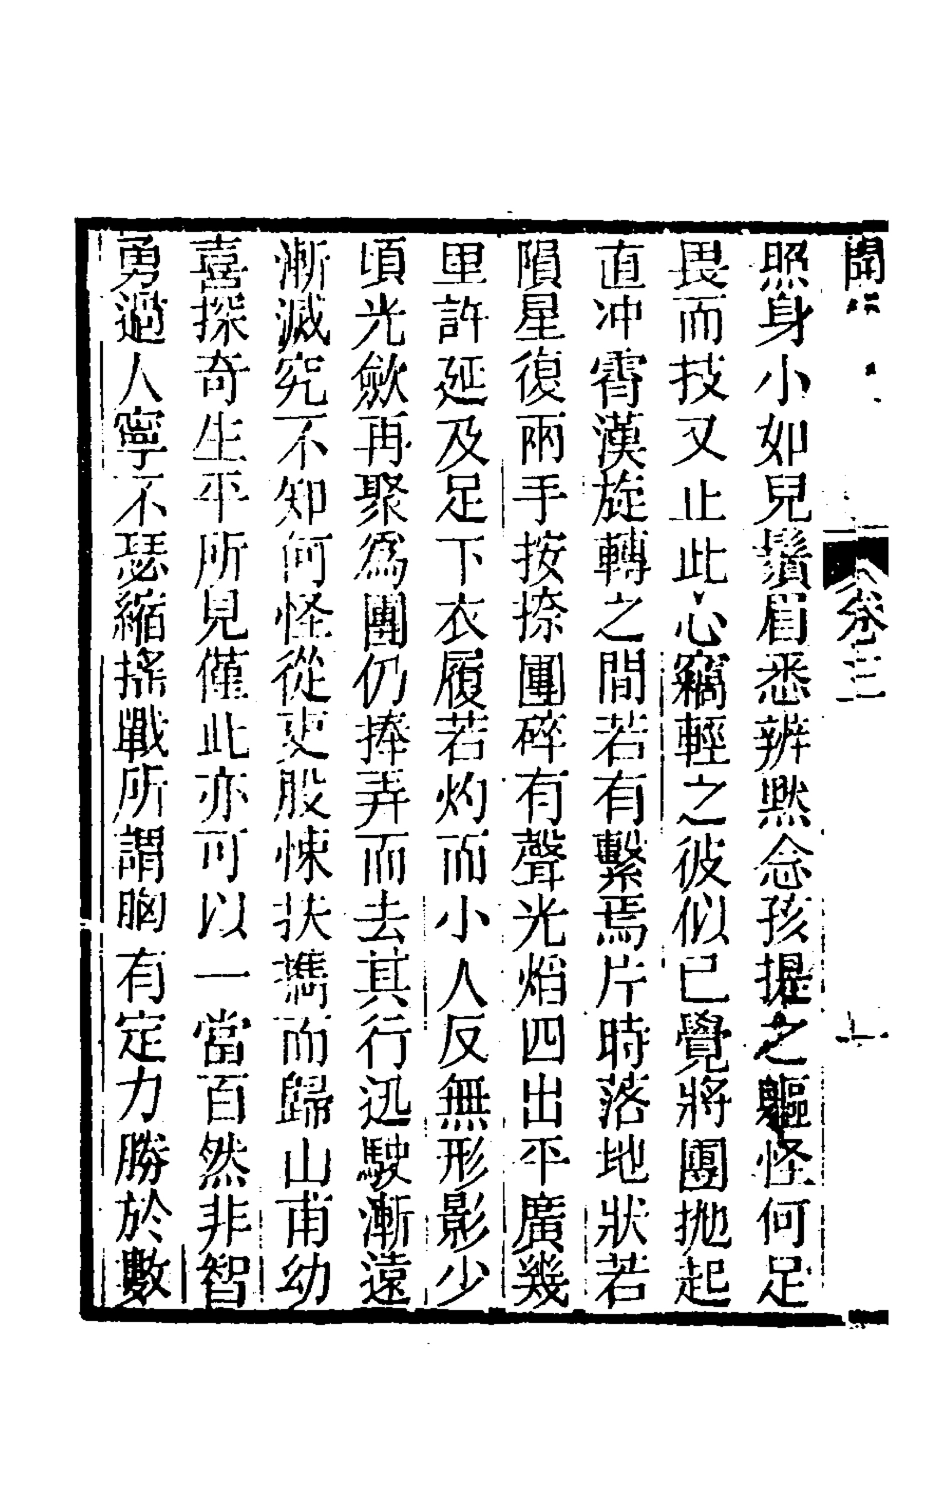 卷三
照身小如兒鬚眉悉辨黙念孩提之軀怪何足
畏而技又止此心竊輕之彼似已覺將團拋起
直冲霄漢旋轉之間若有繫焉片時落地狀若
隕星復兩手按捺團碎有聲光焰四出平廣幾
里許延及足下衣履若灼而小人反無形影少
頃光斂再聚爲團仍捧弄而去其行迅駛漸遠
漸滅究不知何怪從吏股悚扶攜而歸山甫幼
喜探奇生平所見僅此亦可以一當百然非智
勇過人寧不瑟縮搖戰所謂胸有定力勝於數